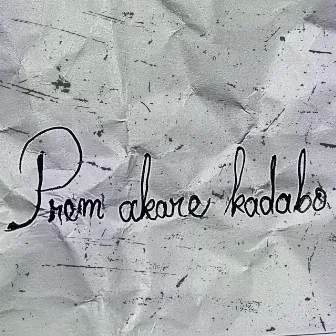 Prem akare kadabo